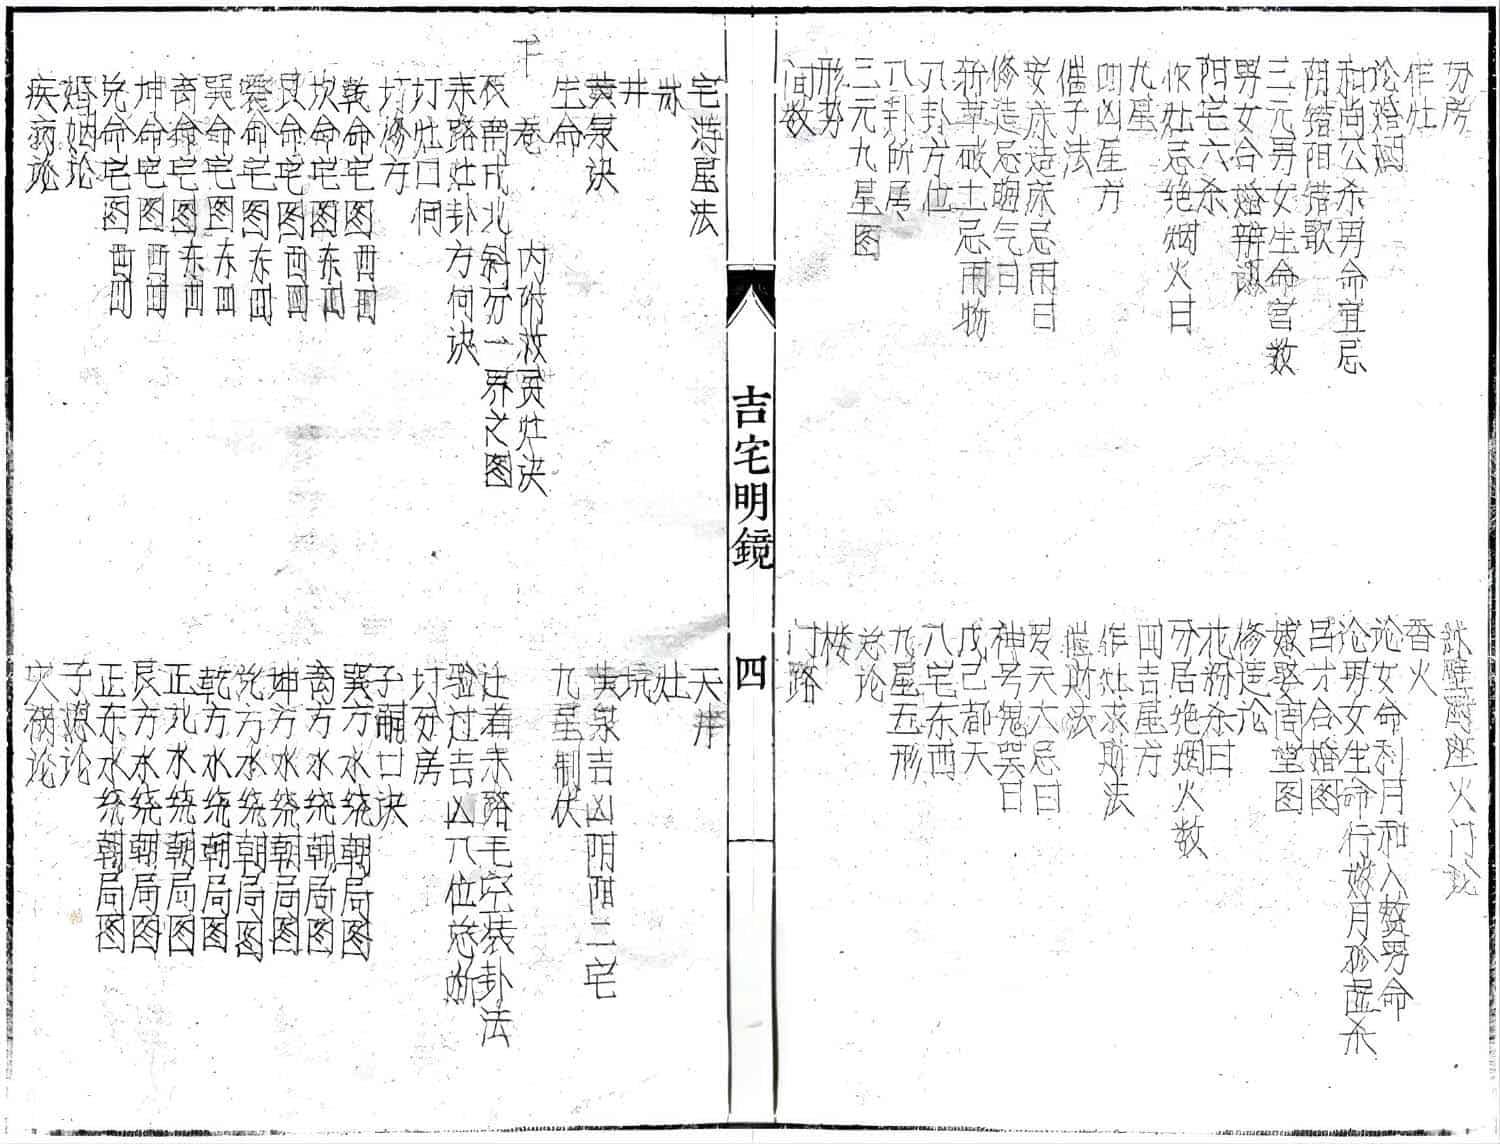 分房
作灶
论婚姻
和尚公杀男命宜忌
阴错阳错歌
三元男女生命宫数
男女合婚辩谬
阳宅六杀
作灶忌绝烟火日
九星
四凶星方
催子法
安床造床忌用日
修造忌晦气日
斩草破土忌用物
八卦方位
八卦所属
三元九星图
形势
间数
火门论
香火
论女命利月和入赘男命
论男女生命行嫁月
吕才合婚图
嫁娶周堂图
修造论
花粉杀日
分居绝烟火数
四吉星方
作灶求财法
催财法
罗天大忌日
神号鬼哭日
戊己都天
八宅东西
九星五形
总论
楼
门路
吉宅明鏡
四
宅游星法
井
黄泉诀
生命
下卷
内附救灵灶诀
辰南戌北斜分一界之图
来路灶卦方何诀
打灶口何
打修方
乾命宅图西四
坎命宅图东四
艮命宅图西四
震命宅图东四
巽命宅图东四
离命宅图东四
坤命宅图西四
兑命宅图西四
婚姻论
疾病论
天井
灶
坑
黄泉吉凶阴阳二宅
九星制伏
验过吉凶八位总断
打分房
子嗣口诀
巽方水绕朝局图
离方水绕朝局图
坤方水绕朝局图
兑方水绕朝局图
乾方水绕朝局图
正北水绕朝局图
艮方水绕朝局图
正东水绕朝局图
子息论
灾祸论